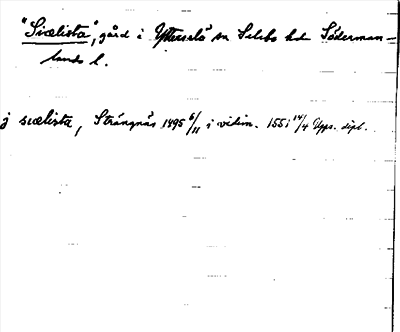 "Siælista", gård i Ytterselö sn Selebo hd Söderman-
lands l.
j siælista, Strängnäs 1495 6/11 i vidim. 1551 14/4 Upps. dipl.